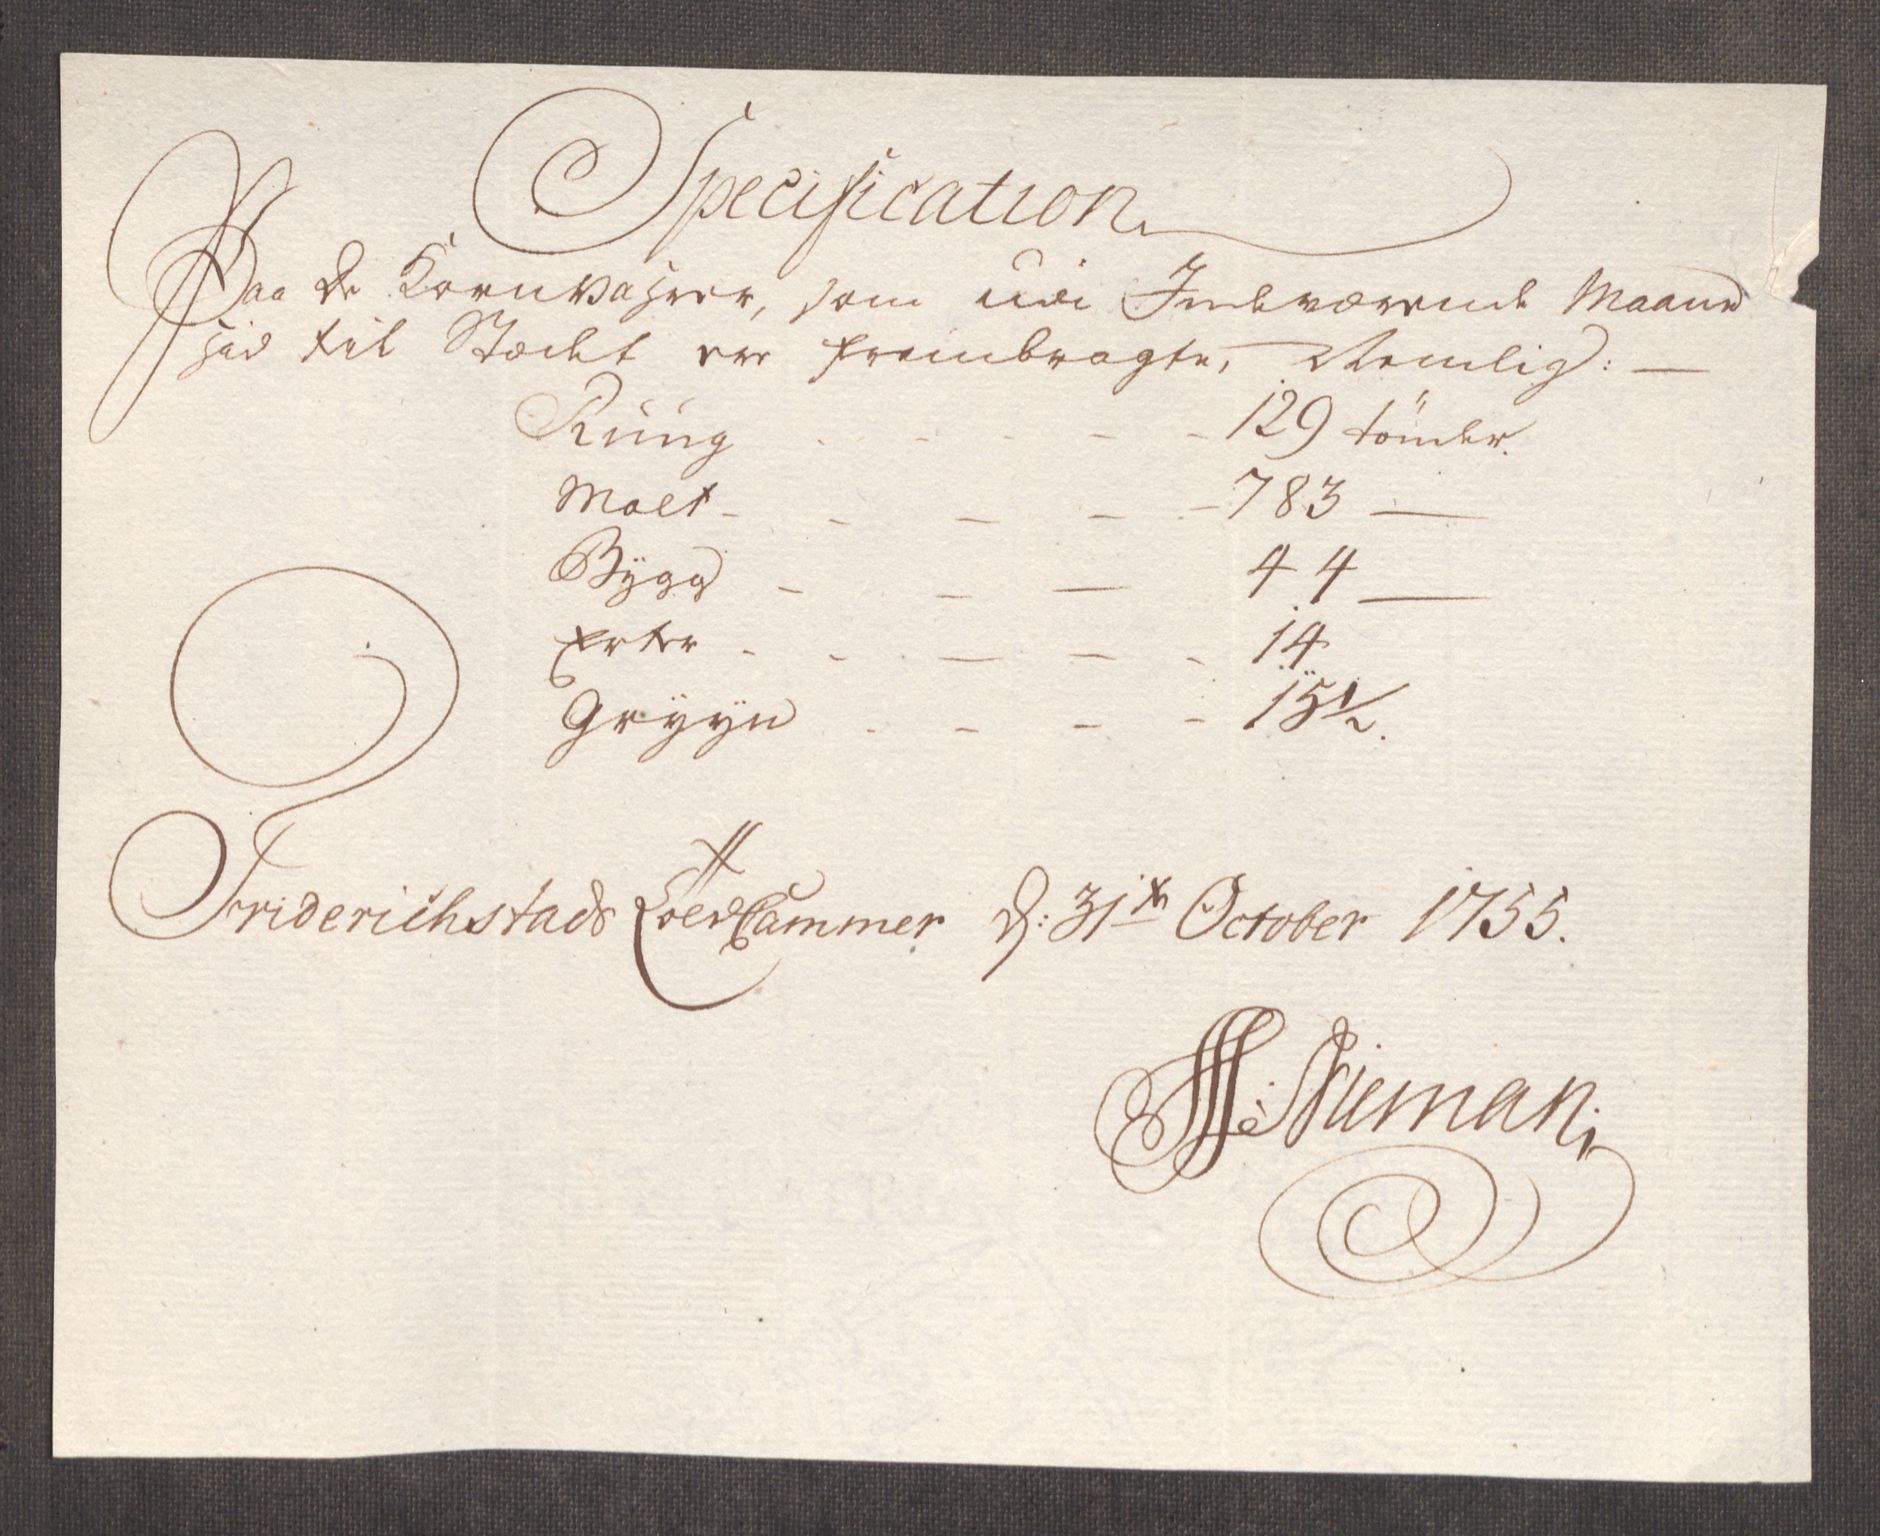 Specification
Paa de Kornvahrer, som udi Indeværende Maaned
hid til Stædet ere frembragte, Nemlig: —
Rúúg - - - - - 129 tönder.
Malt - - - - - 783 —
Bÿgg - - - 44 —
Erter - - - - - 14
Grÿÿn - - - - 15 1/2.
Friderichstads Told Cammer d: 31te October 1755.
Nieman